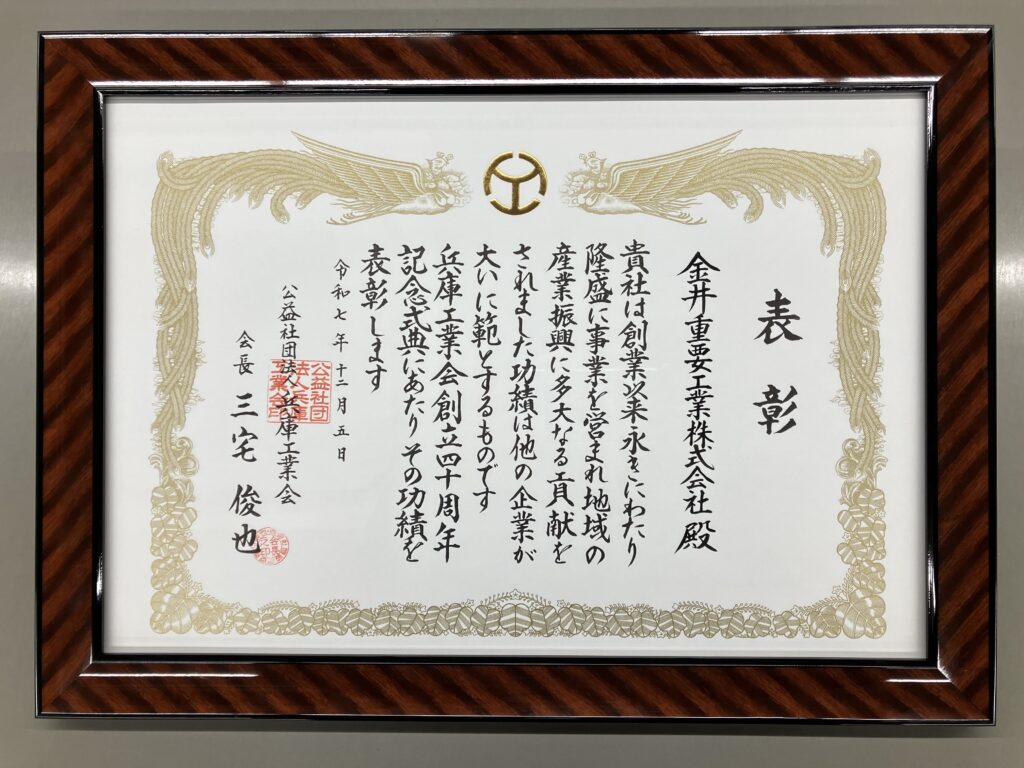 表彰
金井重要工業株式会社 殿
貴社は創業以来永きにわたり
隆盛に事業を営まれ地域の
産業振興に多大なる貢献を
されました功績は他の企業が
大いに範とするものです
兵庫工業会創立四十周年
記念式典にあたりその功績を
表彰します
令和七年十二月五日
公益社団法人兵庫工業会
会長 三宅俊也
公益社団
法人兵庫
工業会印